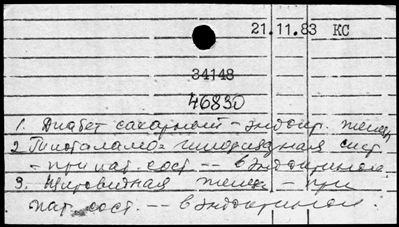 21.11.83 КС
34148
46830
1. Диабет сахарный - эндокр. желез
2 Гипоталамо-гипофизарная сист.
- при пат. сост. -- в эндокринол.
3. Щитовидная желез. - при
пат. сост. -- в эндокринол.